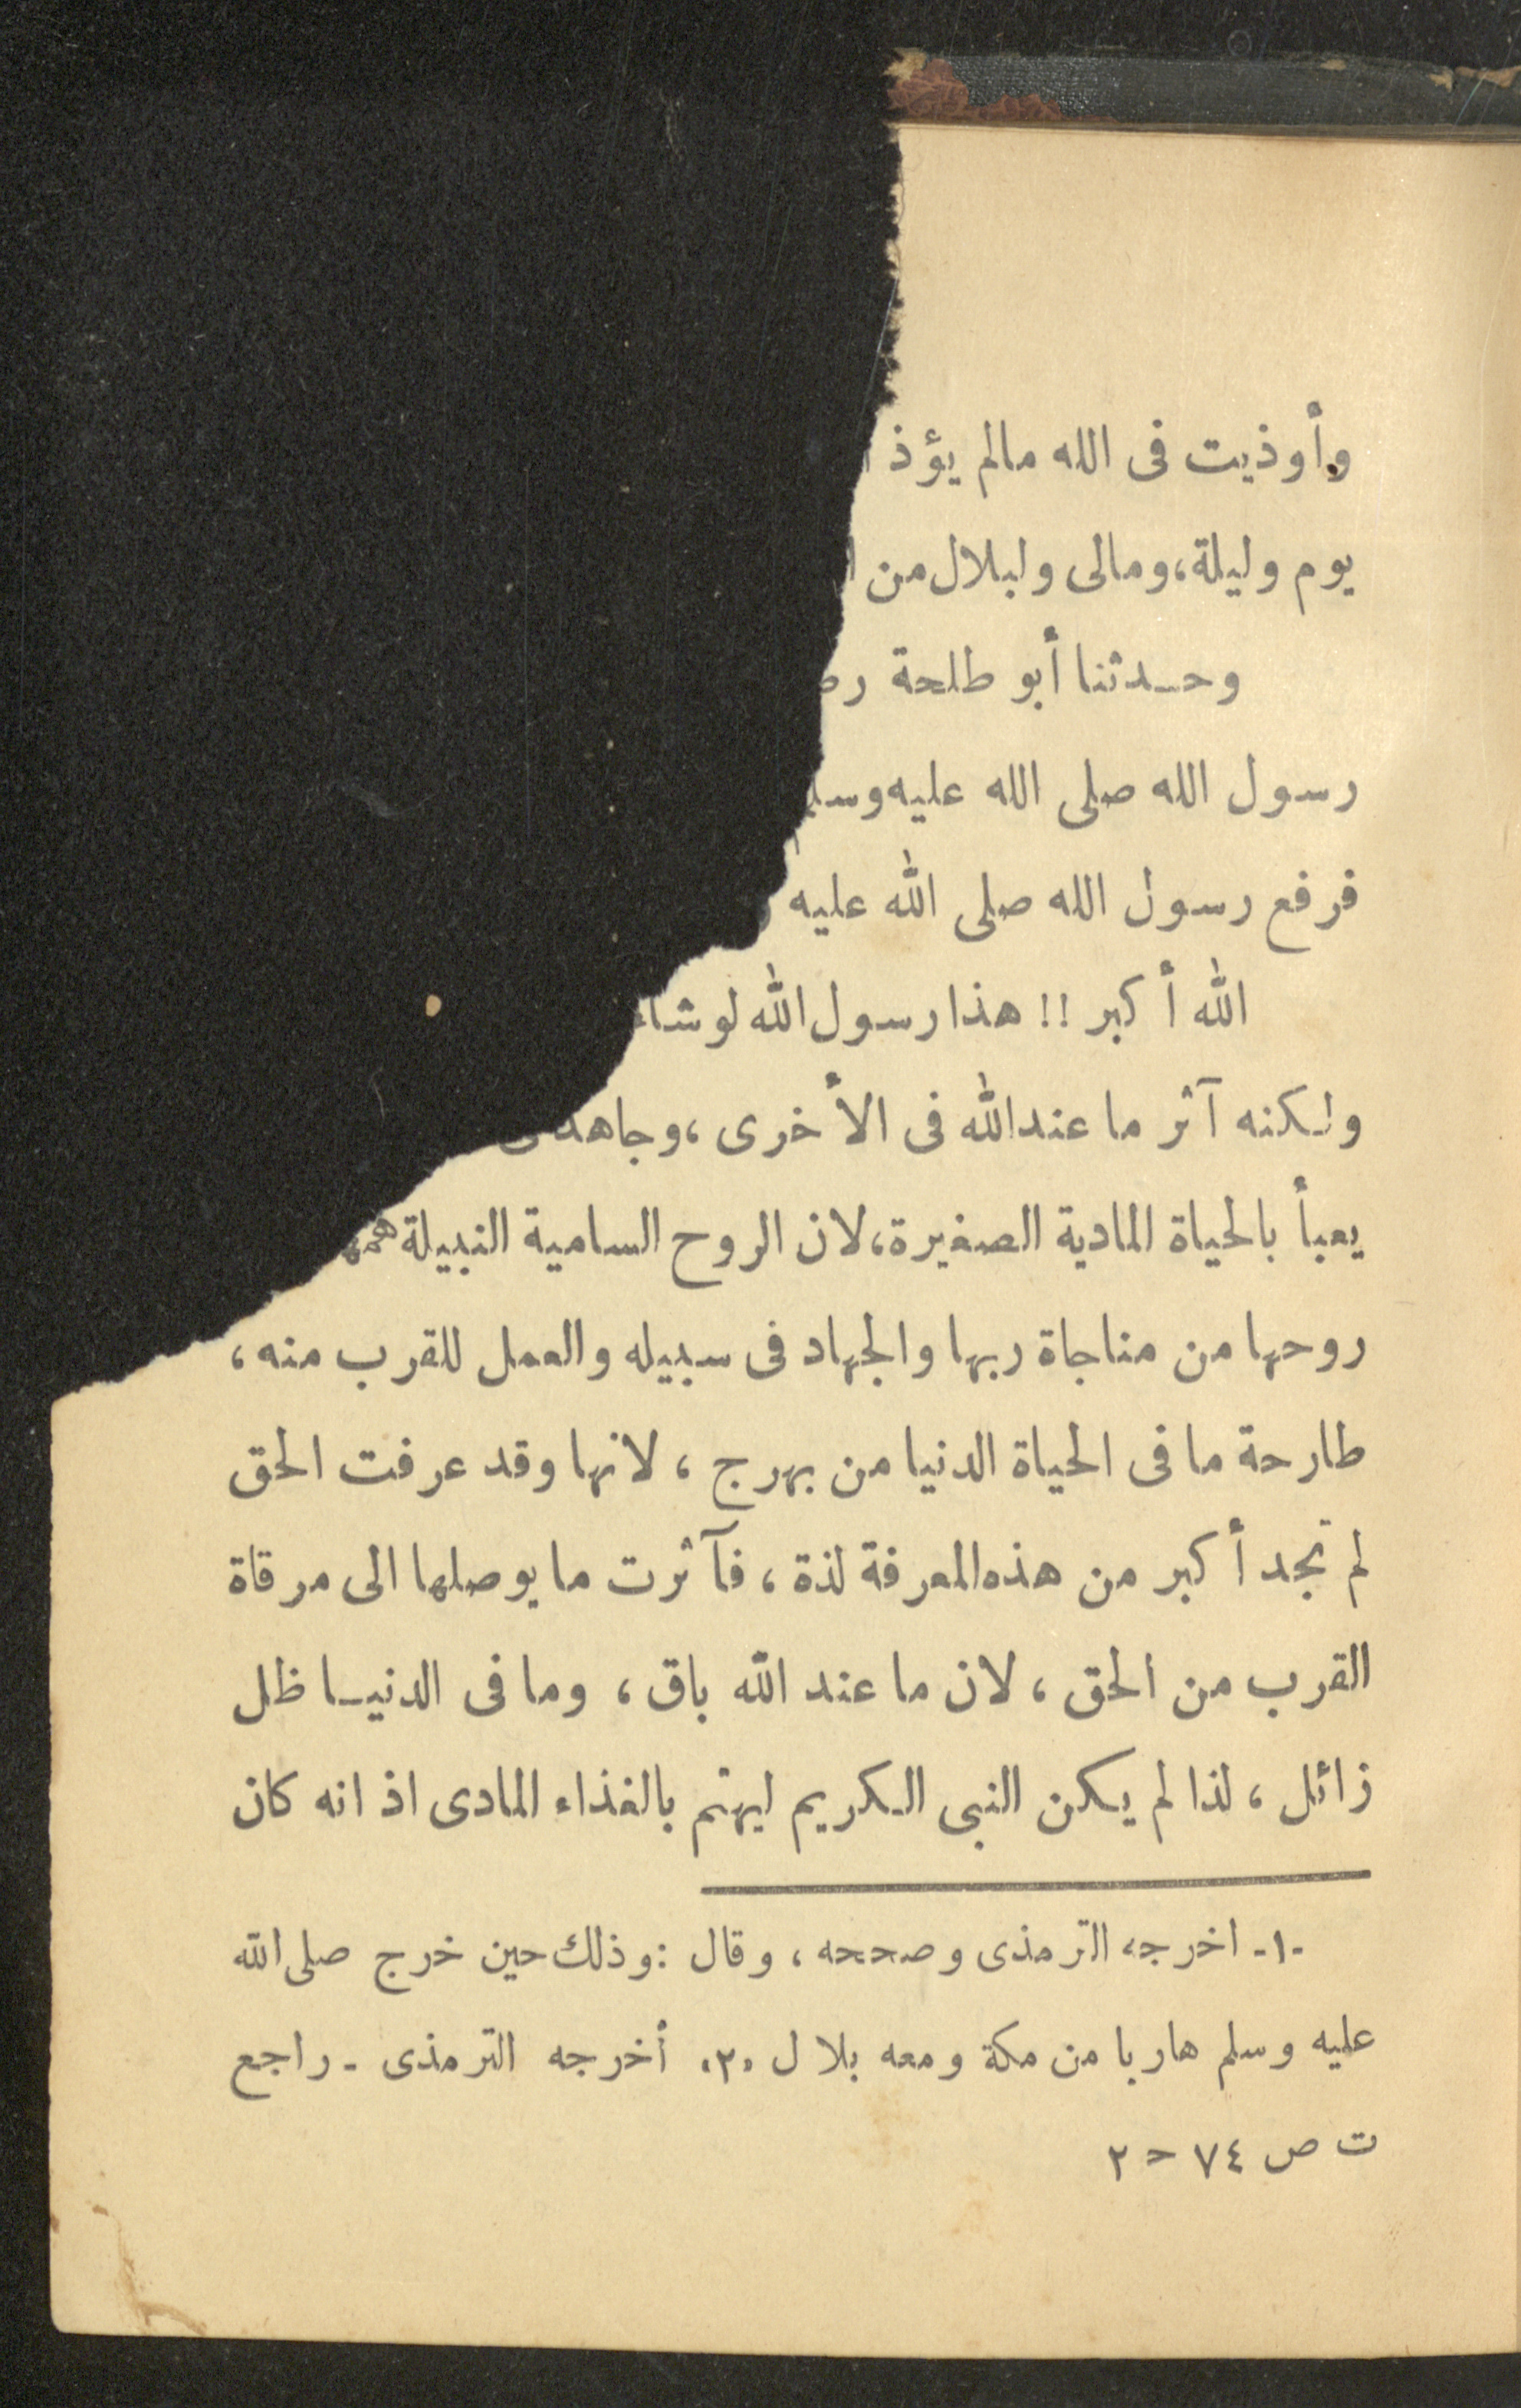 وأوذيت فى الله مالم يؤذ
يوم وليلة، ومالى ولبلال من
وحدثنا أبو طلحة
رسول الله صلى الله عليه وسلم
فرفع رسول الله صلى الله عليه
الله أكبر !! هذا رسول الله لو شاء
ولكنه آثر ما عند الله فى الأخرى ، وجاهد
يعبأ بالحياة المادية الصغيرة، لان الروح السامية النبيلة
روحها من مناجاة ربها والجهاد فى سبيله والعمل للقرب منه ،
طارحة ما فى الحياة الدنيا من بهرج ، لانها وقد عرفت الحق
لم تجد أكبر من هذه المعرفة لذة ، فآثرت ما يوصلها الى مرقاة
القرب من الحق ، لان ما عند الله باق ، وما فى الدنيا ظل
زائل ، لذا لم يكن النبى الكريم ليهتم بالغذاء المادى اذ انه كان
-١- اخرجه الترمذى وصححه ، وقال : وذلك حين خرج صلى الله
عليه وسلم هاربا من مكة ومعه بلال .٢. أخرجه الترمذى - راجع
ت ص ٧٤ ح ٢